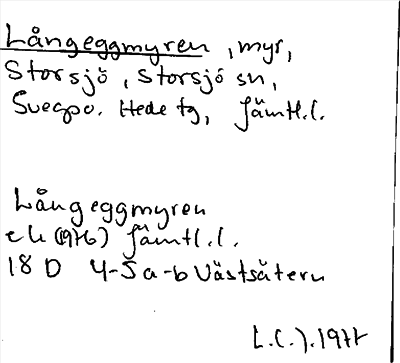 Långeggmyren, myr,
Storsjö, Storsjö sn,
Svegs po. Hede tg, Jämtl.l.
Långeggmyren
ek (1976) Jämtl.l.
18 D 4-5 a-b Västsätern
1977